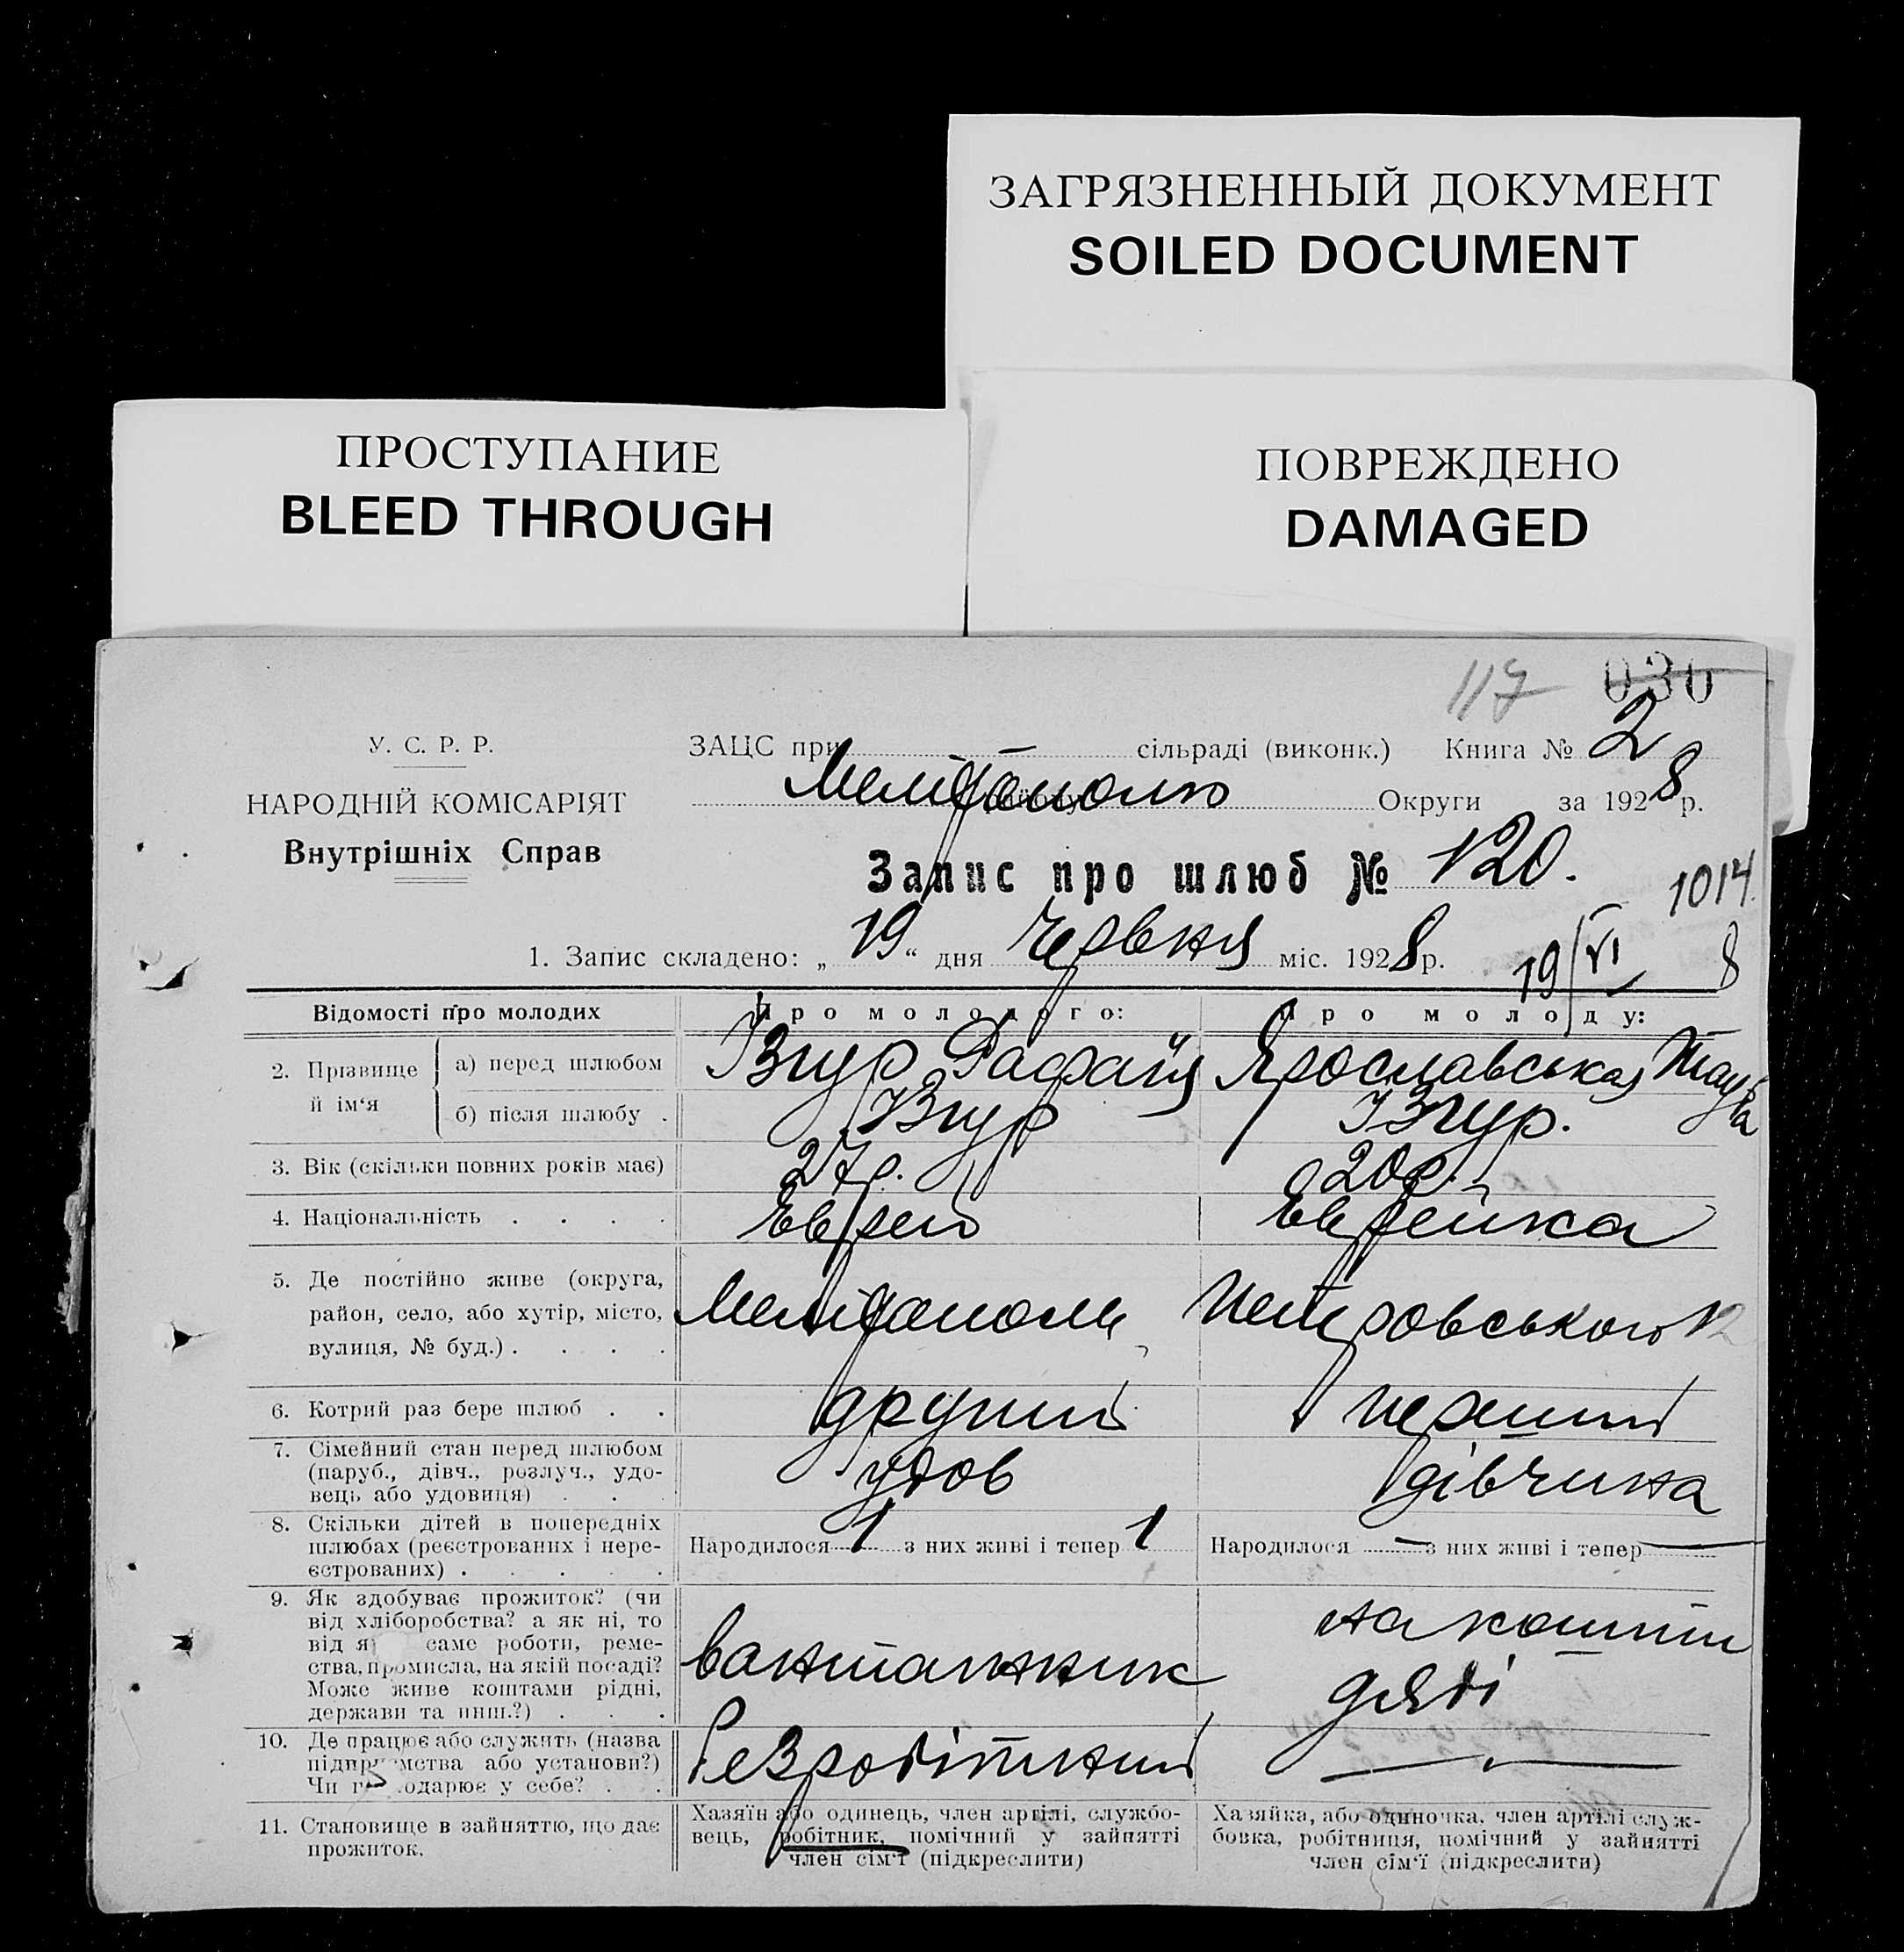 ЗАГРЯЗНЕННЫЙ ДОКУМЕНТ
SOILED DOCUMENT
ПРОСТУПАНИЕ
BLEED THROUGH
ПОВРЕЖДЕНО
DAMAGED
117 030
У. С. Р. Р.
НАРОДНІЙ КОМІСАРІЯТ
Внутрішніх Справ
ЗАЦС при — сільраді (виконк.) Книга № 2
Мелітополю Округи за 1928 р.
Запис про шлюб № 120.
1014
1. Запис складено: „19“ дня Червня міс. 1928 р.
19/VI 8
Відомості про молодих
Про молодого:
Про молоду:
2. Прізвище й ім‘я
а) перед шлюбом
Ізгур Рафаїл
Ярославськая Тауба
б) після шлюбу .
Ізгур
Ізгур.
3. Вік (скільки повних років має)
27 р.
20 р.
4. Національність . . . .
Еврей
Еврейка
5. Де постійно живе (округа,
район, село, або хутір, місто,
вулиця, № буд.) . . . .
Мелітополь, Петровського 12
6. Котрий раз бере шлюб . .
другий
перший
7. Сімейний стан перед шлюбом
(паруб., дівч., розлуч., удо-
вець або удовиця) . .
удов
дівчина
8. Скільки дітей в попередніх
шлюбах (реєстрованих і нере-
єстрованих) . . . . .
Народилося 1 з них живі і тепер 1
Народилося — з них живі і тепер —
9. Як здобуває прожиток? (чи
від хліборобства? а як ні, то
від я саме роботи, реме-
ства, промисла, на якій посаді?
Може живе коштами рідні,
держави та инш.?) . . .
вантажник
на кошти
дяді
10. Де працює або служить (назва
підпр мства або установи?)
Чи г одарює у себе? . .
безробітний
—
11. Становище в зайняттю, що дає
прожиток.
Хазяїн або одинець, член артілі, службо-
вець, робітник, помічний у зайнятті
член сім‘ї (підкреслити)
Хазяйка, або одиночка, член артілі служ-
бовка, робітниця, помічний у зайнятті
член сім‘ї (підкреслити)